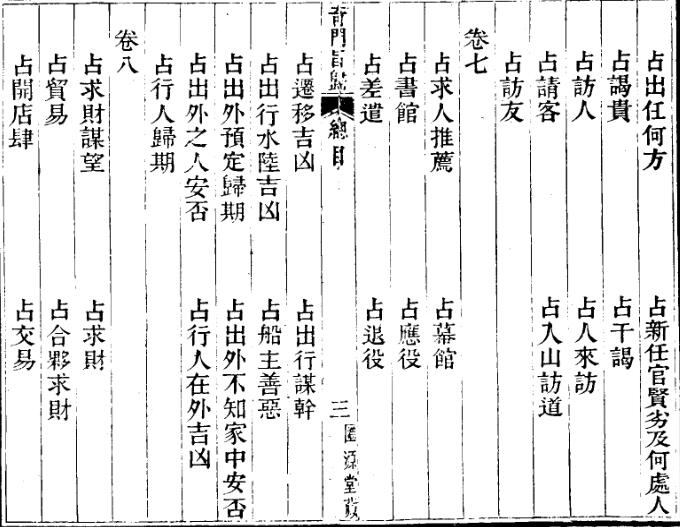 占出任何方　占新任官賢劣及何處人
占謁貴　占干謁
占訪人　占人來訪
占請客　占入山訪道
占訪友
卷七
占求人推薦　占幕館
占書館　占應役
占差遣　占退役
奇門旨歸　總目　三
占遷移吉凶　占出行謀幹
占出行水陸吉凶　占船主善惡
占出外預定歸期　占出外不知家中安否
占出外之人安否　占行人在外吉凶
占行人歸期
卷八
占求財謀望　占求財
占貿易　占合夥求財
占開店肆　占交易